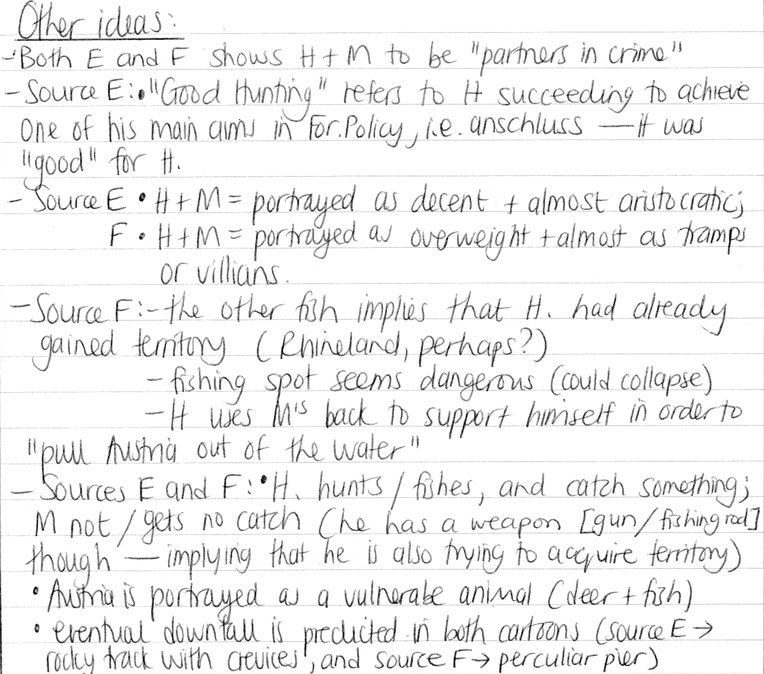 Other ideas:
- Both E and F shows H + M to be "partners in crime"
- Source E: • "Good Hunting" refers to H succeeding to achieve
one of his main aims in For. Policy, i.e. anschluss — it was
"good" for H.
- Source E • H + M = portrayed as decent + almost aristocratic;
F • H + M = portrayed as overweight + almost as tramps
or villians.
- Source F: - the other fish implies that H. had already
gained territory (Rhineland, perhaps?)
- fishing spot seems dangerous (could collapse)
- H uses M's back to support himself in order to
"pull Austria out of the water"
- Sources E and F: • H. hunts / fishes, and catch something;
M not / gets no catch (he has a weapon [gun/fishing rod]
though — implying that he is also trying to acquire territory)
• Austria is portrayed as a vulnerabe animal (deer + fish)
• eventual downfall is predicted in both cartoons (source E →
rocky track with crevices, and source F → perculiar pier)